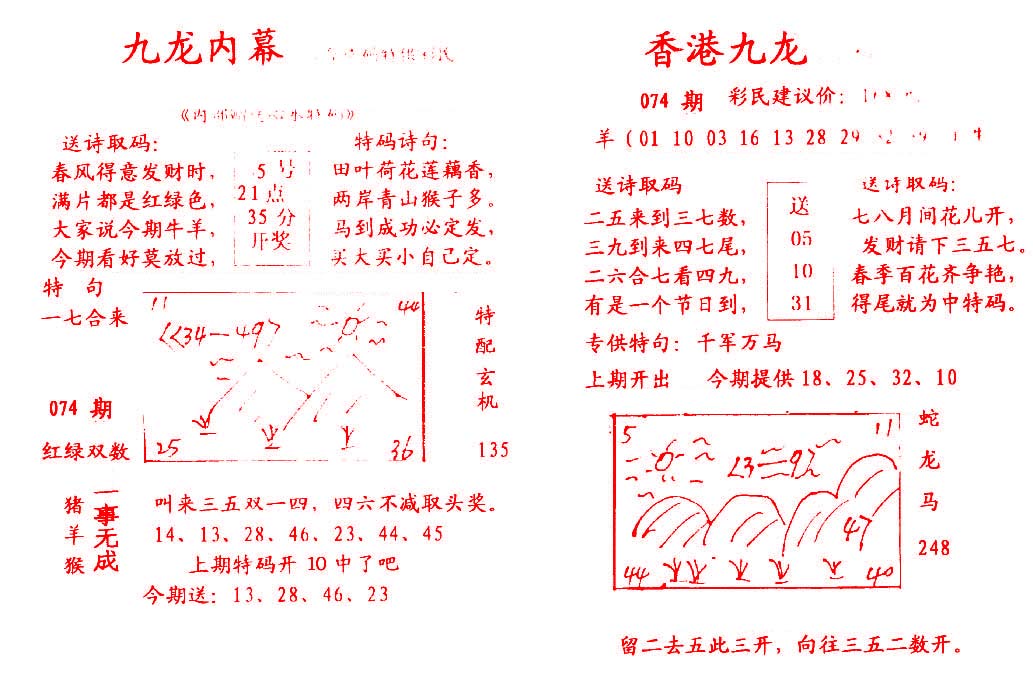 九龙内幕
送诗取码：
春风得意发财时，
满片都是红绿色，
大家说今期牛羊，
今期看好莫放过，
5 号
21 点
35 分
开奖
特码诗句：
田叶荷花莲藕香，
两岸青山猴子多。
马到成功必定发，
买大买小自己定。
特 句
一七合来
074 期
红绿双数
11
44
34—49
25
36
特配玄机
135
猪羊猴
一事无成
叫来三五双一四，四六不减取头奖。
14、13、28、46、23、44、45
上期特码开 10 中了吧
今期送：13、28、46、23
香港九龙
074 期 彩民建议价：
羊（01 10 03 16 13 28 29
送诗取码
二五来到三七数，
三九到来四七尾，
二六合七看四九，
有是一个节日到，
送
05
10
31
送诗取码：
七八月间花儿开，
发财请下三五七。
春季百花齐争艳，
得尾就为中特码。
专供特句：千军万马
上期开出 今期提供18、25、32、10
5
11
47
44
40
蛇
龙
马
248
留二去五此三开，向往三五二数开。